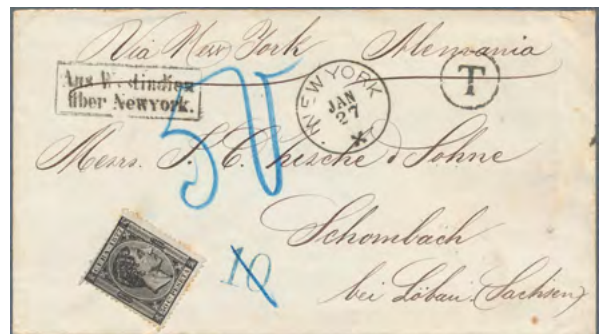 Via New York Alemania
Aus Westindien
über Newyork.
NEW YORK
JAN
27
T
Messrs. J. C. & Söhne
Schönbach
bei Löbau (Sachsen)
10